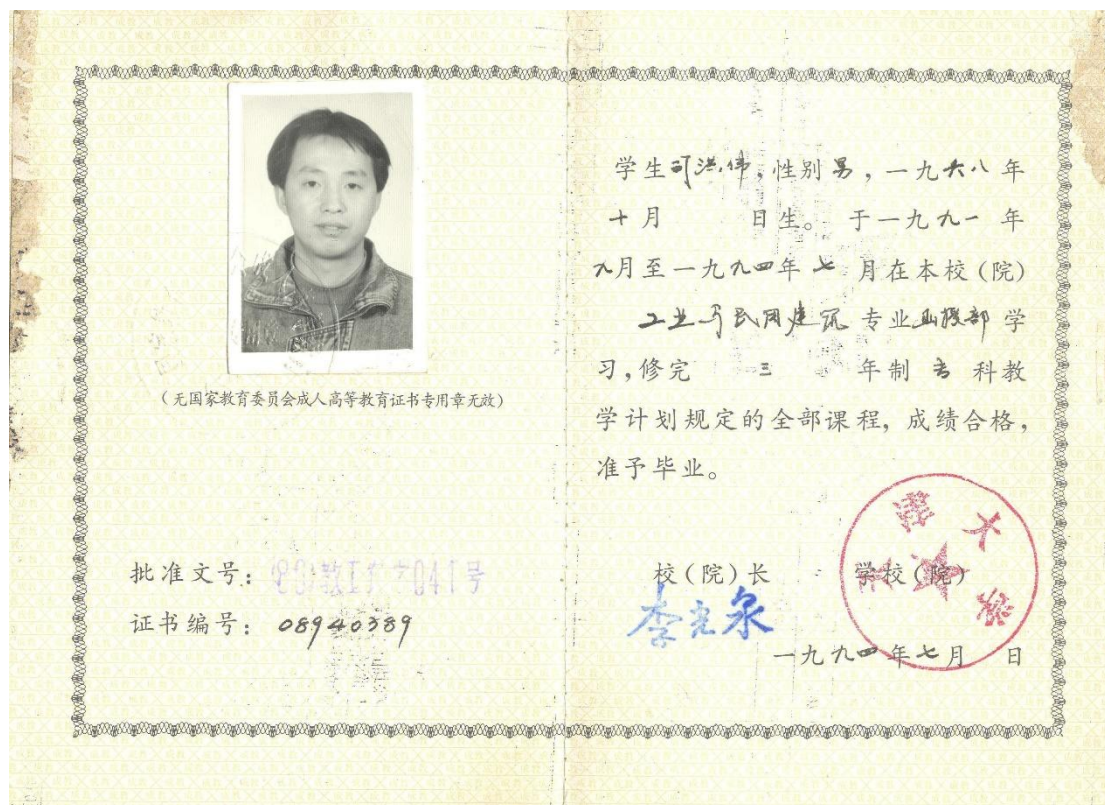 (无国家教育委员会成人高等教育证书专用章无效)
批准文号：
证书编号：08940389
学生司洪伟，性别男，一九六八年
十月 日生。于一九九一年
九月至一九九四年七月在本校(院)
工业与民用建筑专业函授部学
习，修完三年制专科教
学计划规定的全部课程，成绩合格，
准予毕业。
校(院)长 学校(院)
李光泉
一九九四年七月 日
天津大学